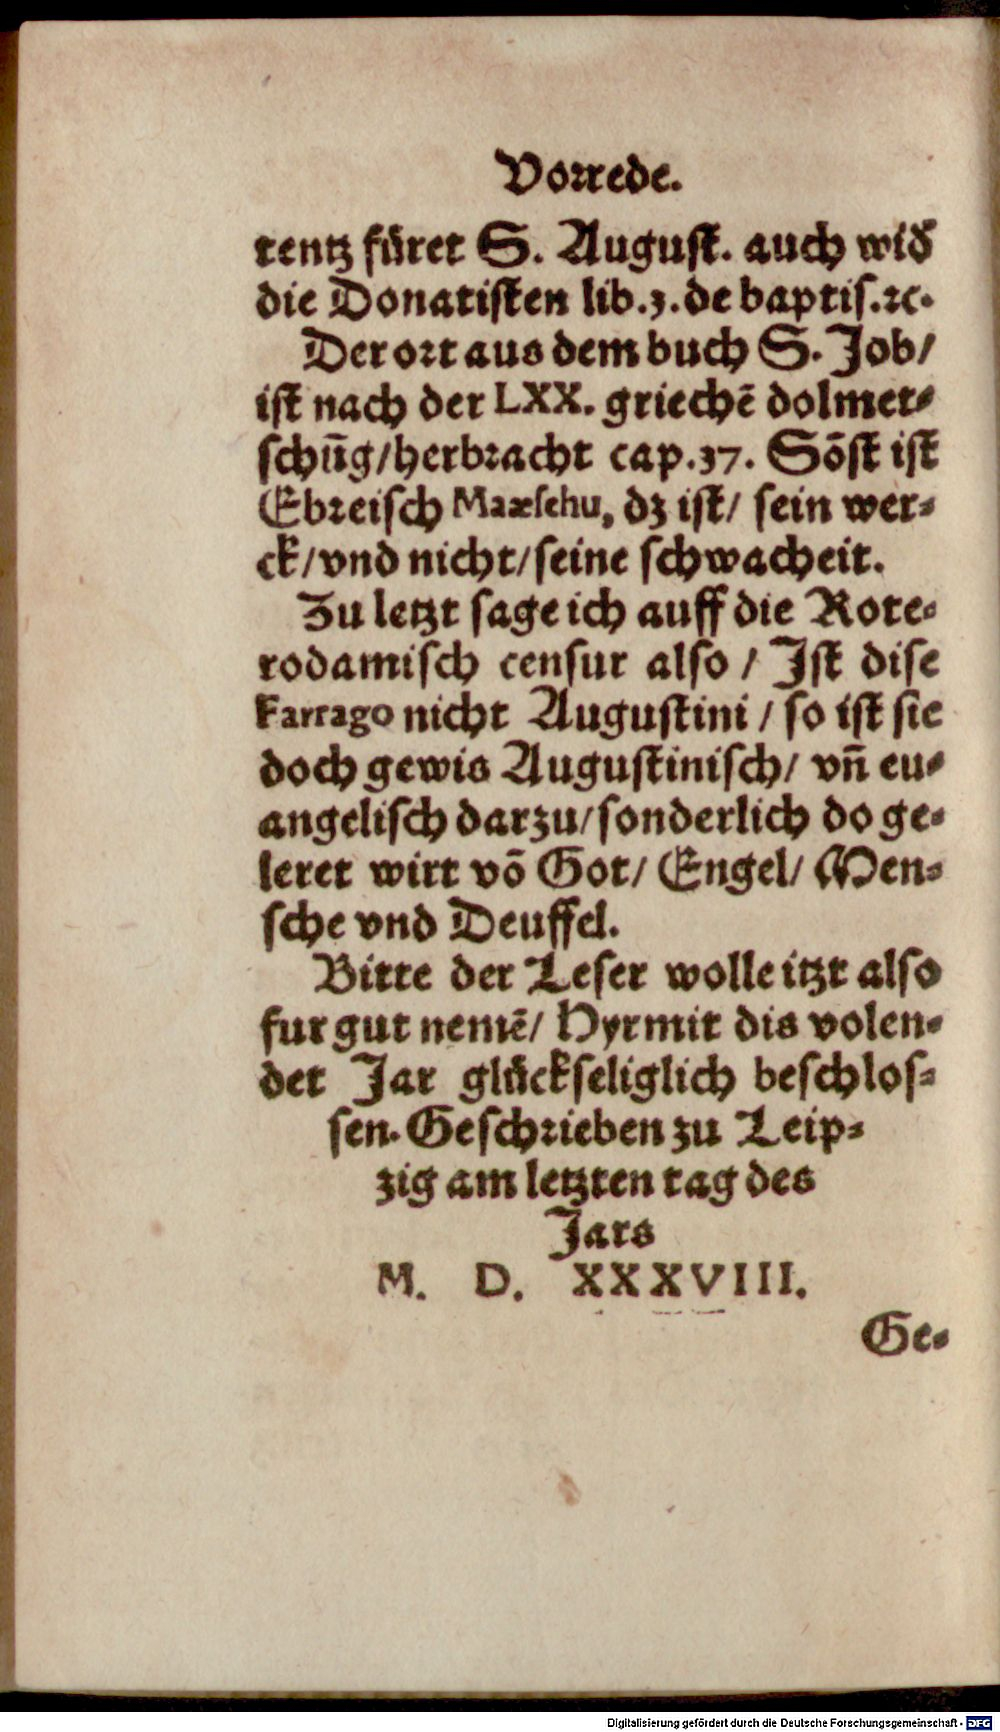 Vorrede.
tentz füret S. August. auch wid̕
die Donatisten lib. 3. de baptis. ꝛc.
Der ort aus dem buch S. Job/
ist nach der LXX. griechē dolmet⸗
schūg/herbracht cap. 37. Sōst ist
Ebreisch Maæschu, dz ist/ sein wer⸗
ck/vnd nicht/seine schwacheit.
Zu letzt sage ich auff die Rote⸗
rodamisch censur also / Ist dise
Farrago nicht Augustini / so ist sie
doch gewis Augustinisch/ vñ eu⸗
angelisch darzu/sonderlich do ge⸗
leret wirt vō Got/ Engel/ Men⸗
sche vnd Deuffel.
Bitte der Leser wolle itzt also
fur gut nemē/ Hyrmit dis volen⸗
det Jar glückseliglich beschlos⸗
sen. Geschrieben zu Leip⸗
zig am letzten tag des
Jars
M. D. XXXVIII.
Ge⸗
Digitalisierung gefördert durch die Deutsche Forschungsgemeinschaft - DFG